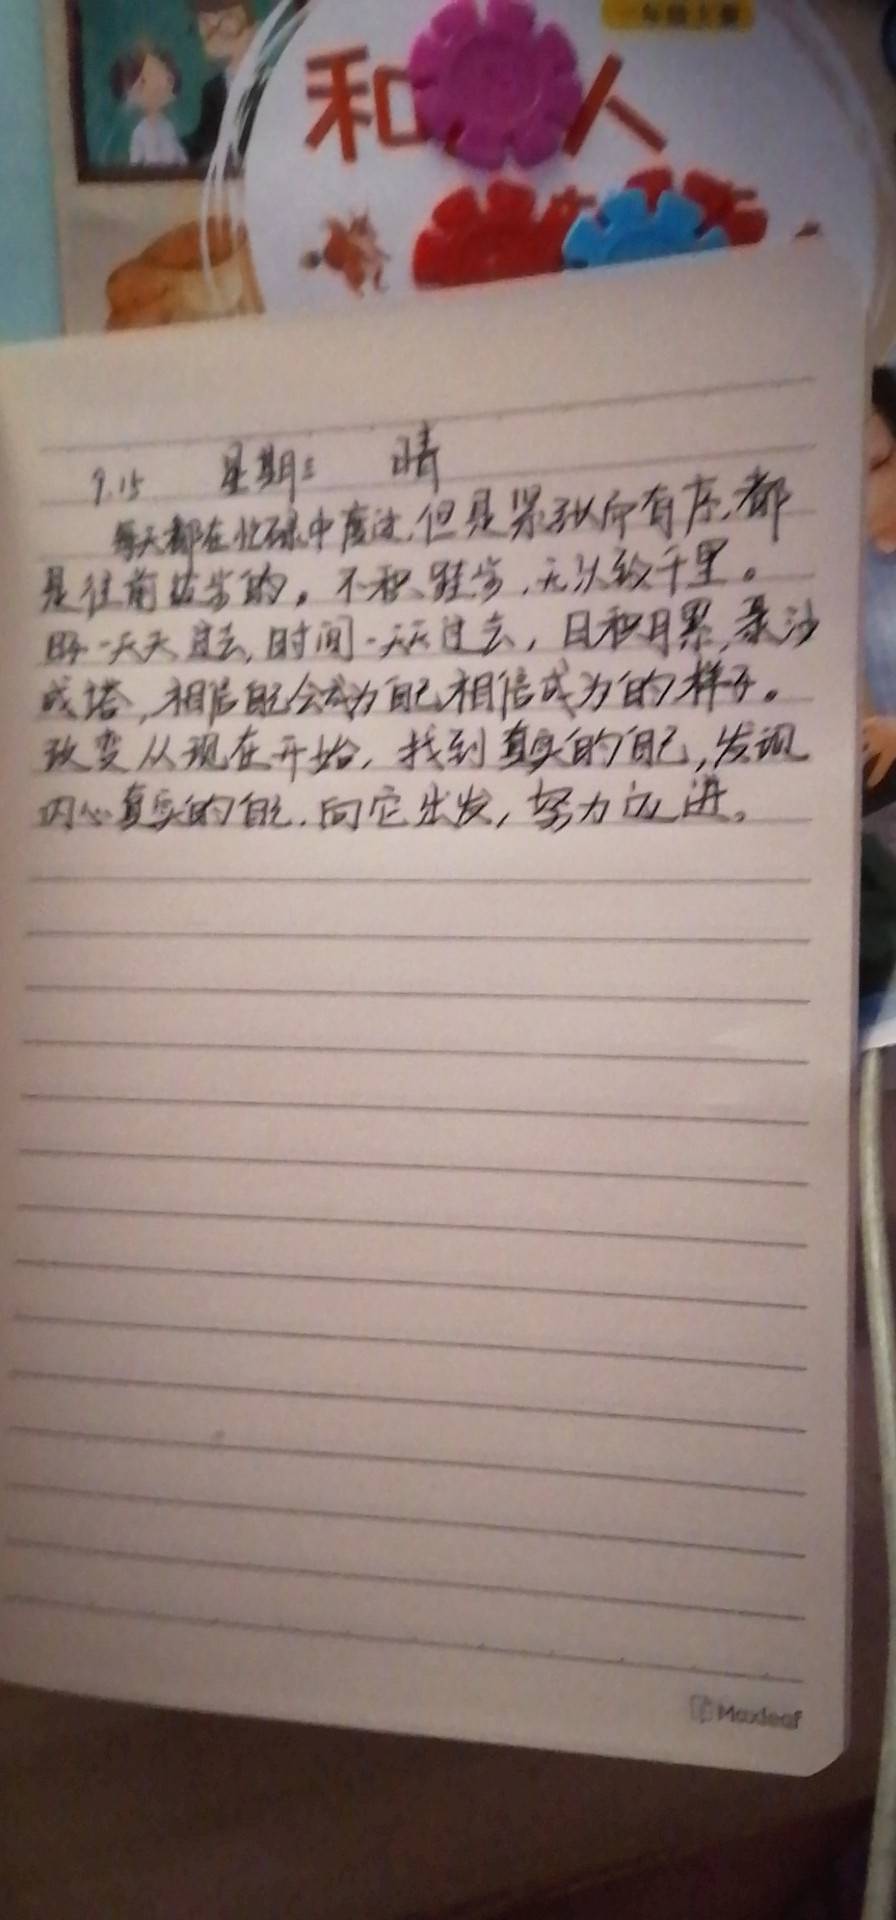 和 人
9.15 星期三 晴
每天都在忙碌中度过,但是累到所有序,都
是往前迈步的。不积跬步,无以致千里。
一天天过去,时间一天天过去,日积月累,聚沙
成塔,相信自己会成为自己相信成为的样子。
改变从现在开始,找到真实的自己,发现
内心真实的自己,向它出发,努力前进。
Maxleaf